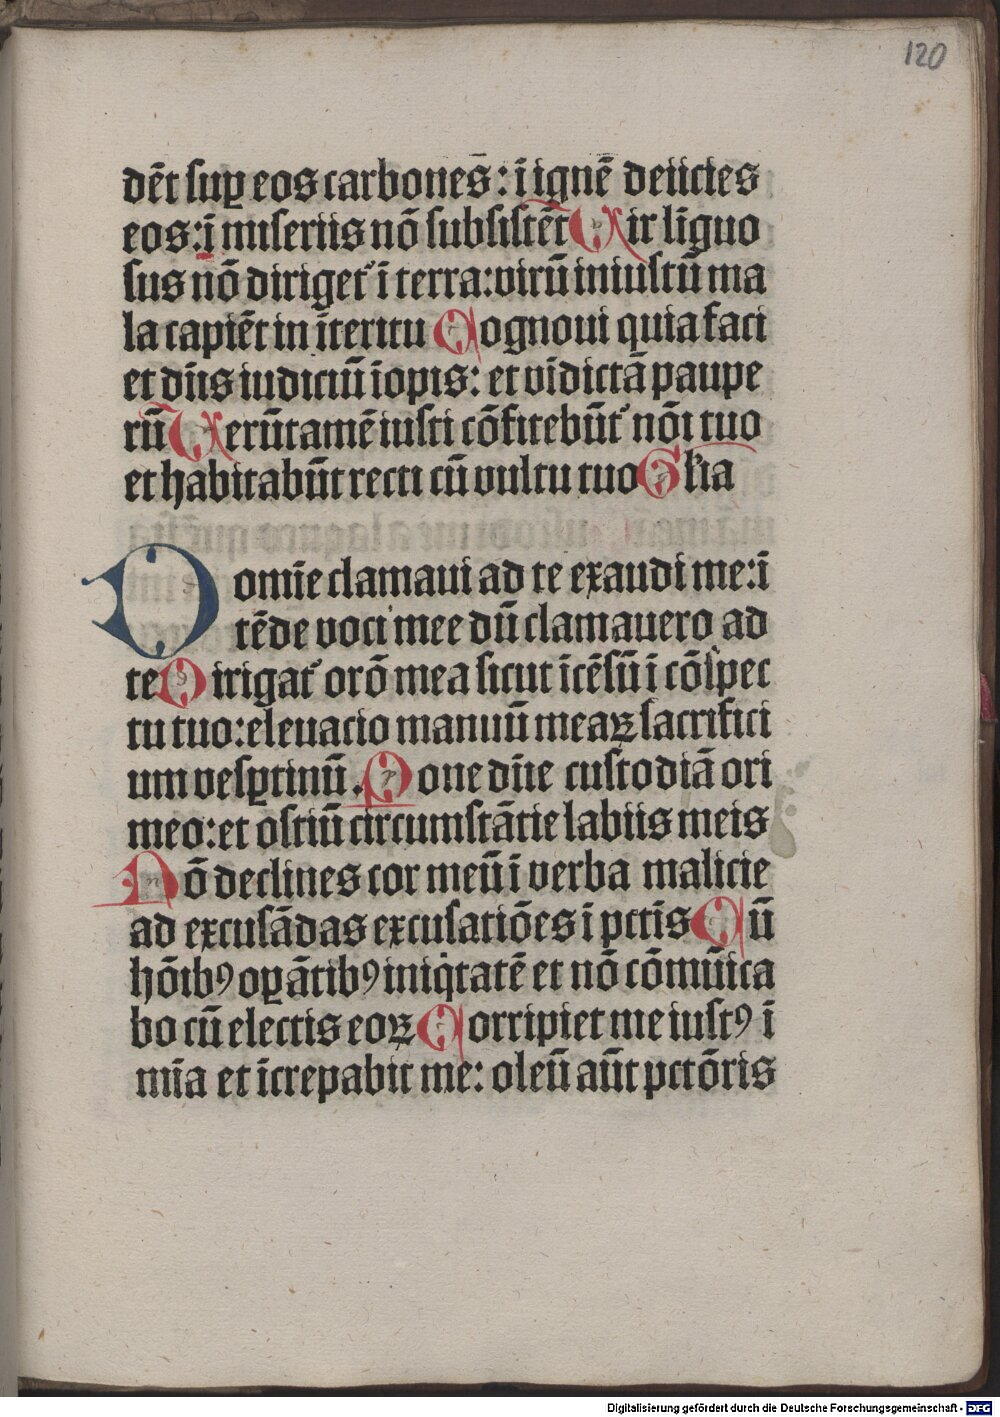 120
dēt suꝑ eos carbones̄: ī ignē deiicies
eos: ī miseriis nō subsistēt Vir līguo
sus nō diriget᷑ ī terra: virū iniustū ma
la capiēt in īteritu Cognoui quia faci
et dn̄s iudiciū īopis: et vīdictā paupe
rū Verūtamē iusti cōfitebūt᷑ nōi tuo
et habitabūt recti cū vultu tuo Gl'ia
Domīe clamaui ad te exaudi me: ī
tēde voci mee dū clamauero ad
te Dirigat᷑ orō mea sicut īcēsū ī cōspec
tu tuo: eleuacio manuū meaꝝ sacrifici
um vesꝑtinū. Pone dn̄e custodiā ori
meo: et ostiū circumstātie labiis meis
Nō declines cor meū ī verba malicie
ad excusādas excusatiōes ī pctīs Cū
hōībꝰ oꝑātibꝰ iniq̇tatē et nō cōmūica
bo cū electis eoꝝ Corripiet me iustꝰ ī
mīa et īcrepabit me: oleū aūt pctōris
Digitalisierung gefördert durch die Deutsche Forschungsgemeinschaft - DFG